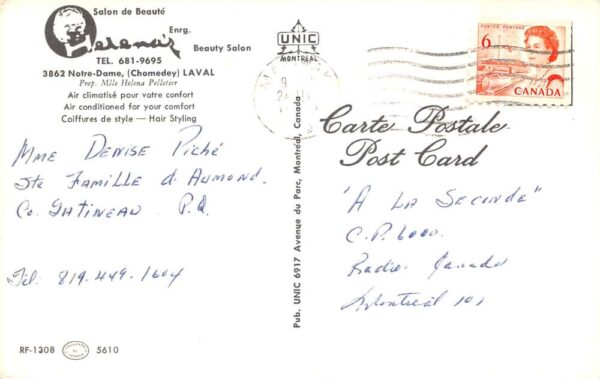 Salon de Beauté
Helena's
Enrg.
Beauty Salon
TEL. 681-9695
3862 Notre-Dame, (Chomedey) LAVAL
Prop. Mlle Helena Pelletier
Air climatisé pour votre confort
Air conditioned for your comfort
Coiffures de style — Hair Styling
Mme DENISE Piché
Ste FAMILLE d. AUMOND.
Co. GATINEAU P.Q.
Tél: 819-449-1604
RF-1308
5610
UNIC
MONTREAL
Pub. UNIC 6917 Avenue du Parc, Montréal, Canada
POSTES POSTAGE
6
CANADA
Carte Postale
Post Card
"A LA SECONDE"
C.P. 6000.
Radio Canada
Montréal 101